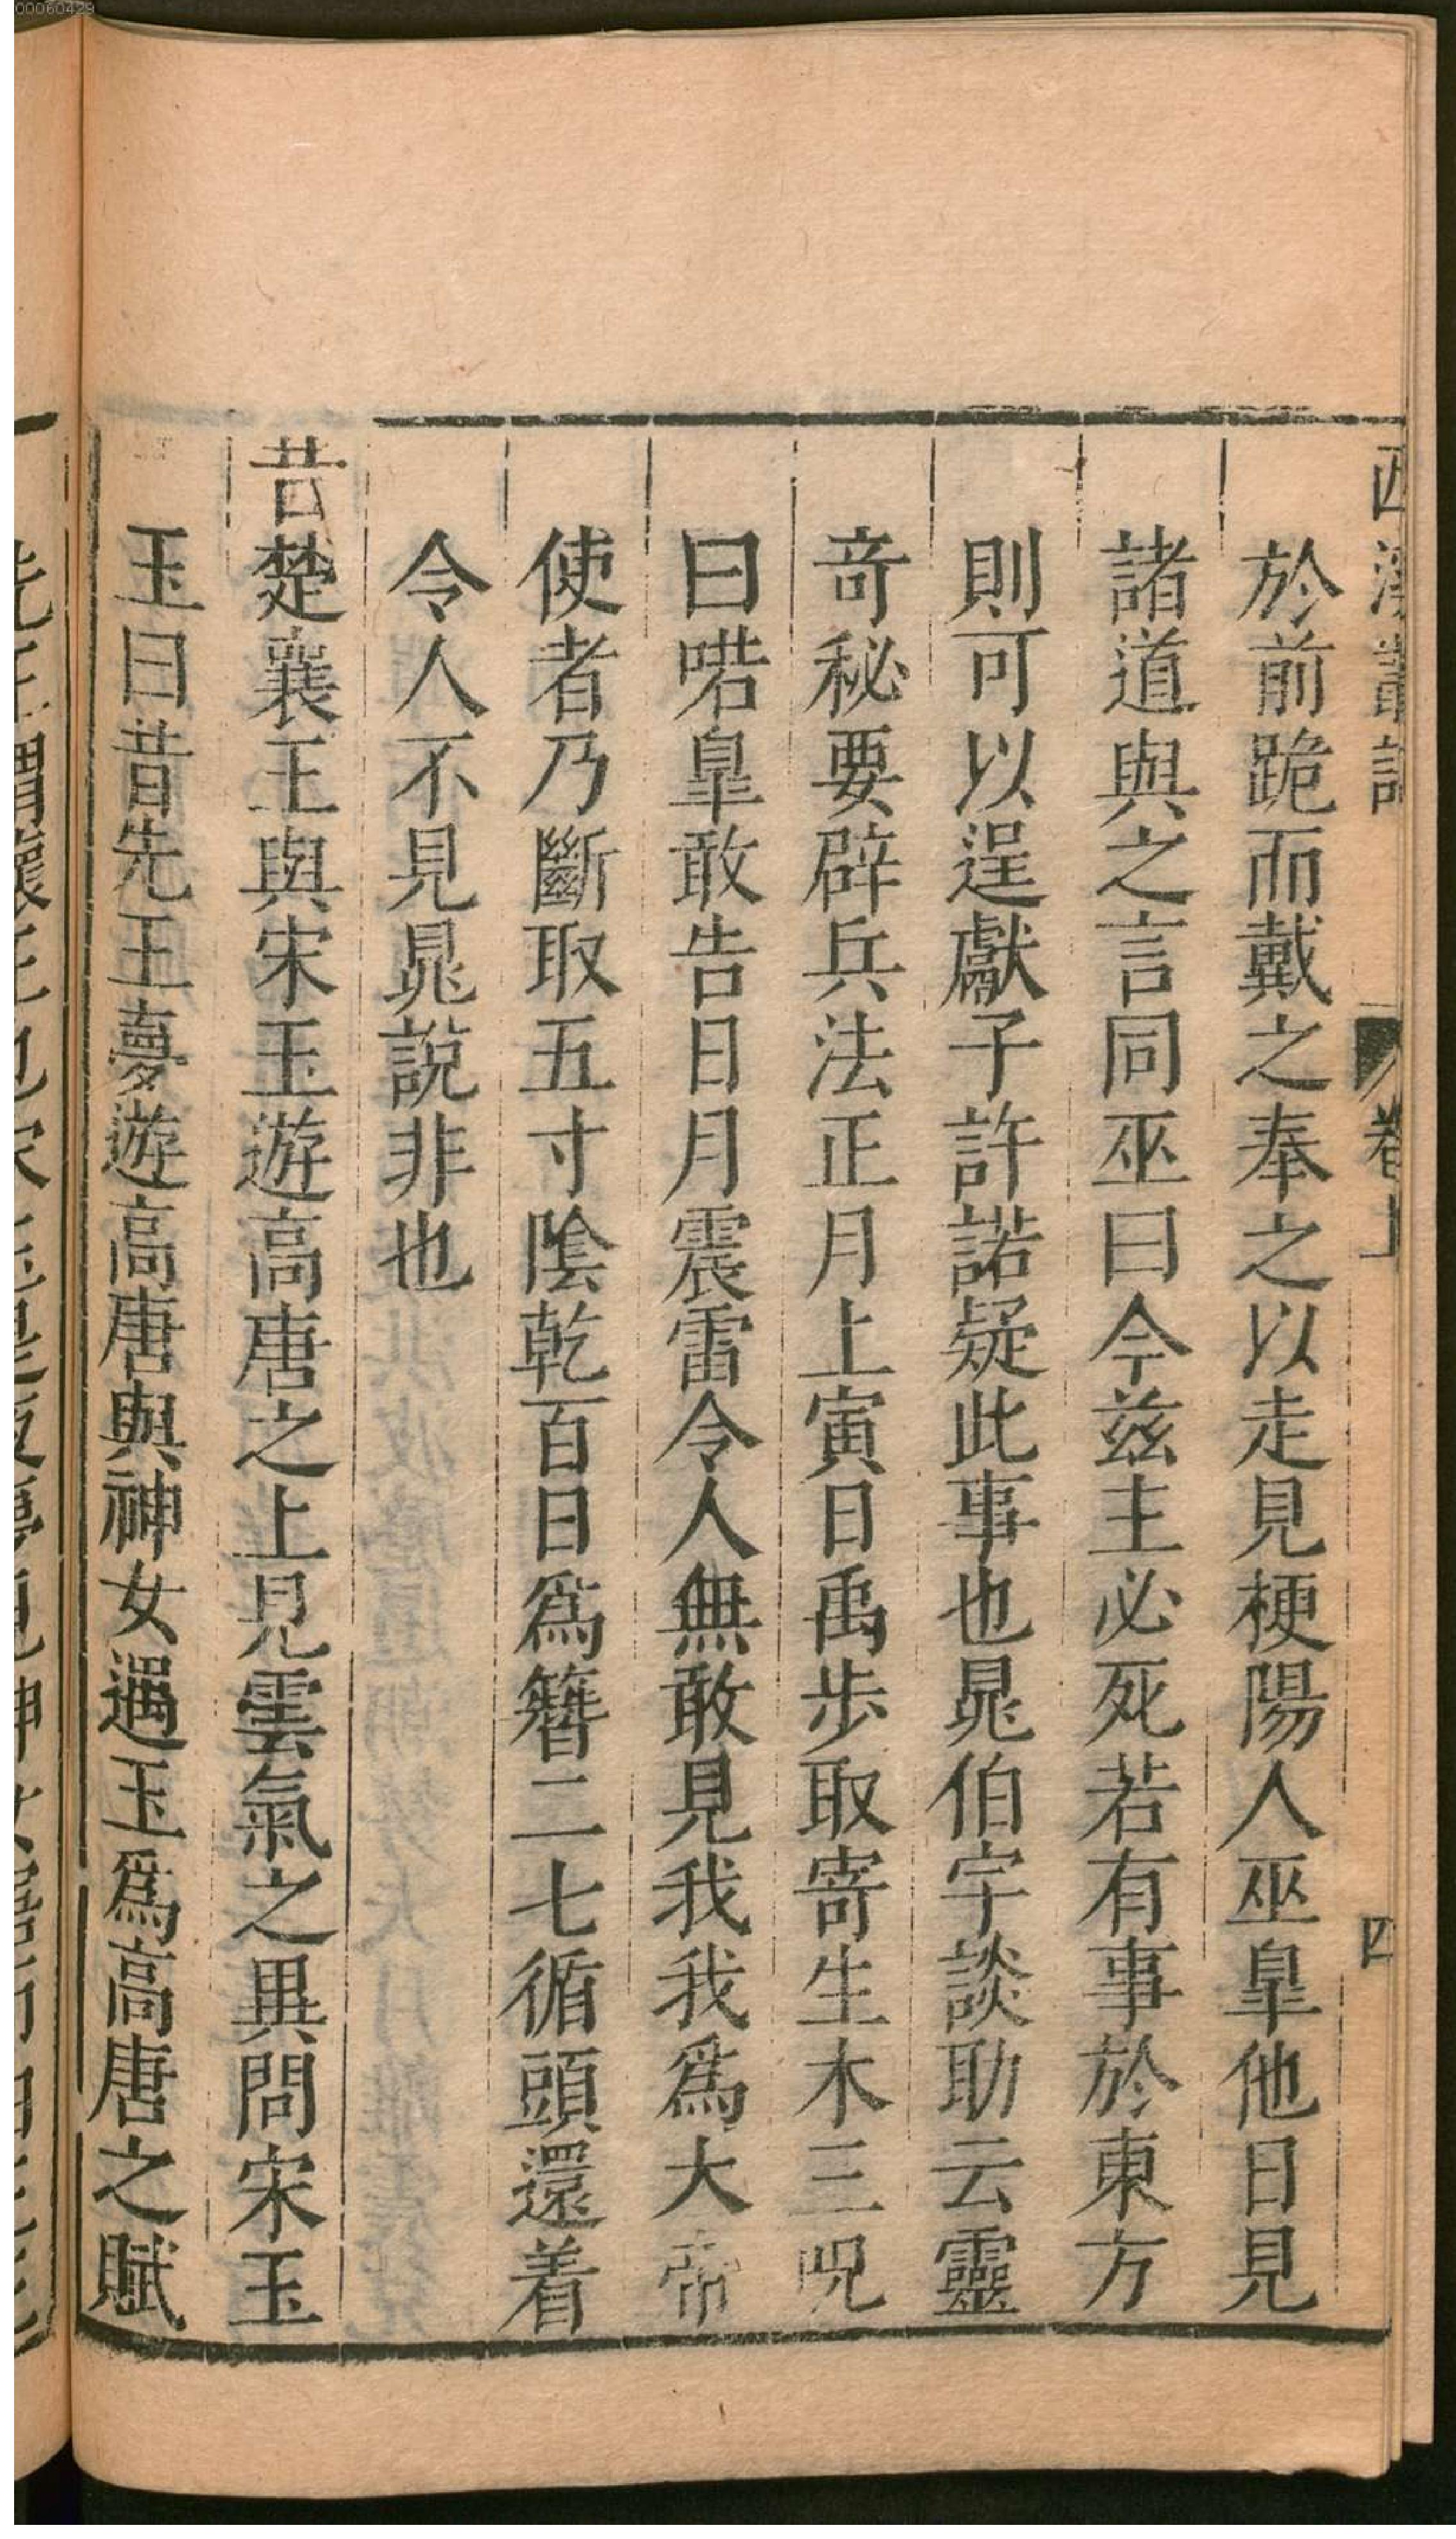 00060429
西溪叢語 卷上 四
於前跪而戴之奉之以走見梗陽人巫臯他日見
諸道與之言同巫曰今兹主必死若有事於東方
則可以逞獻子許諾疑此事也晁伯宇談助云靈
竒秘要辟兵法正月上寅日禹步取寄生木三呪
曰喏臯敢告日月震雷令人無敢見我我爲大帝
使者乃斷取五寸陰乾百日爲簪二七循頭還着
令人不見晁說非也
昔楚襄王與宋玉遊高唐之上見雲氣之異問宋玉
玉曰昔先王夢遊高唐與神女遇玉爲高唐之賦